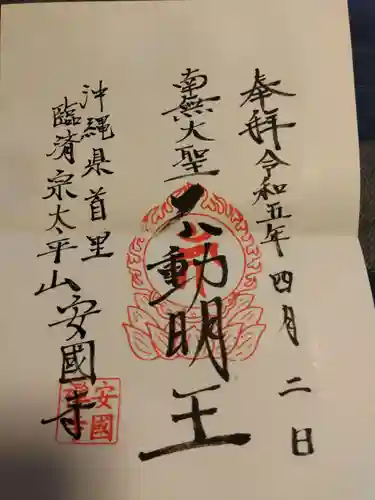 奉拝令和五年四月二日
南無大聖不動明王
沖縄県首里
臨済宗太平山安國寺
安國寺